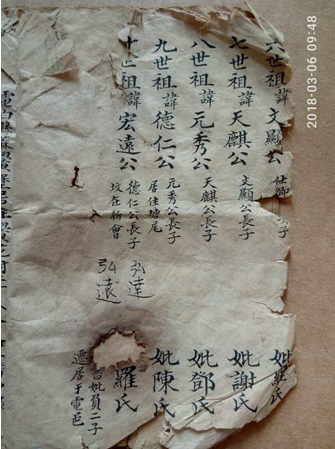 六世祖諱文顯公 仕卿 子 妣羅氏
七世祖諱天麒公 文顯公長子 妣謝氏
八世祖諱元秀公 天麒公長子 妣鄧氏
九世祖諱德仁公 元秀公長子 妣陳氏
居住塘尾
十世祖諱宏遠公 德仁公長子 羅氏
坟在新會
弘達
弘遠
妣負二子
遷居于電邑
2018-03-06 09:48